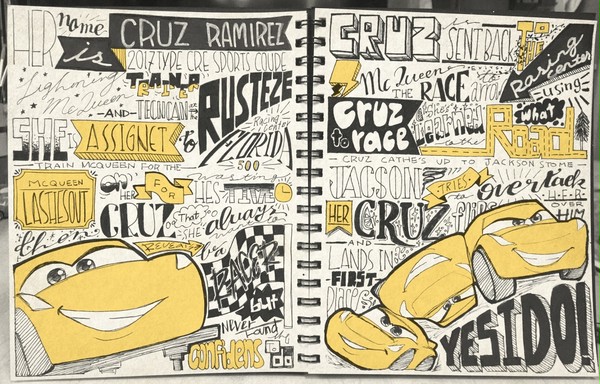 HER name
is CRUZ RAMIREZ
2017 TYPE CRE SPORTS COUPE
Lightning TRAINER
McQueen
-AND- TECHNICIAN
RUSTEZE
Racing
Center
FLORIDA
500
SHE ASSIGNET to
-TRAIN MCQUEEN FOR THE
MCQUEEN
LASHESOUT
ON HER FOR HES
TIME
CRUZ
That
she always
REVEALS
RACER
but
NEVER found
confidens
to do
CRUZ is SENT BACK TO THE
Racing
center
McQueen
THE RACE
-using-
Cruz
to race
learned
what
the Road
- CRUZ CATHE'S UP TO JACKSON STOME -
JACSON TRIES to overtack
HER CRUZ
HER
OVER
HIM
-AND-
LANDS IN
FIRST
place
YES I DO!